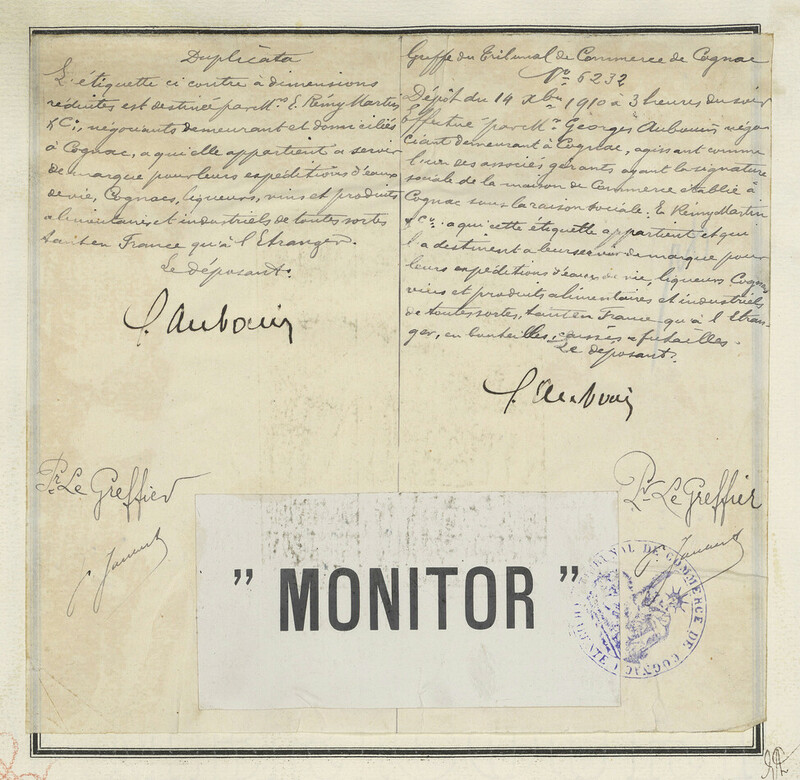 Duplicata
L'étiquette ci contre à dimensions
réduites est destinée par MM. E. Rémy Martin
& Cie, négociants demeurant et domiciliés
à Cognac, a qui elle appartient a servir
de marque pour leurs expéditions d'eaux
de vie, Cognacs, liqueurs, vins et produits
alimentaires et industriels de toutes sortes
tant en France qu'à l'Etranger.
Le déposant.
G. Aubouin
Pr. Le Greffier
Greffe du Tribunal de Commerce de Cognac
No 6232
Dépôt du 14 Xbre 1910 à 3 heures du soir
effectué par Mr. Georges Aubouin, négo-
ciant demeurant à Cognac, agissant comme
l'un des associés gérants ayant la signature
sociale de la maison de Commerce établie à
Cognac sous la raison sociale: E. Rémy Martin
& Co. a qui cette étiquette appartient et qui
l'a destinent a leur servir de marque pour
leurs expéditions d'eaux de vie, liqueurs Cognacs
vins et produits alimentaires et industriels
de toutes sortes, tant en France qu'à l'Etran-
ger, en bouteilles, caisses & futailles.
Le déposant.
G. Aubouin
Pr. Le Greffier
" MONITOR "
TRIBUNAL DE COMMERCE DE COGNAC
CHARENTE